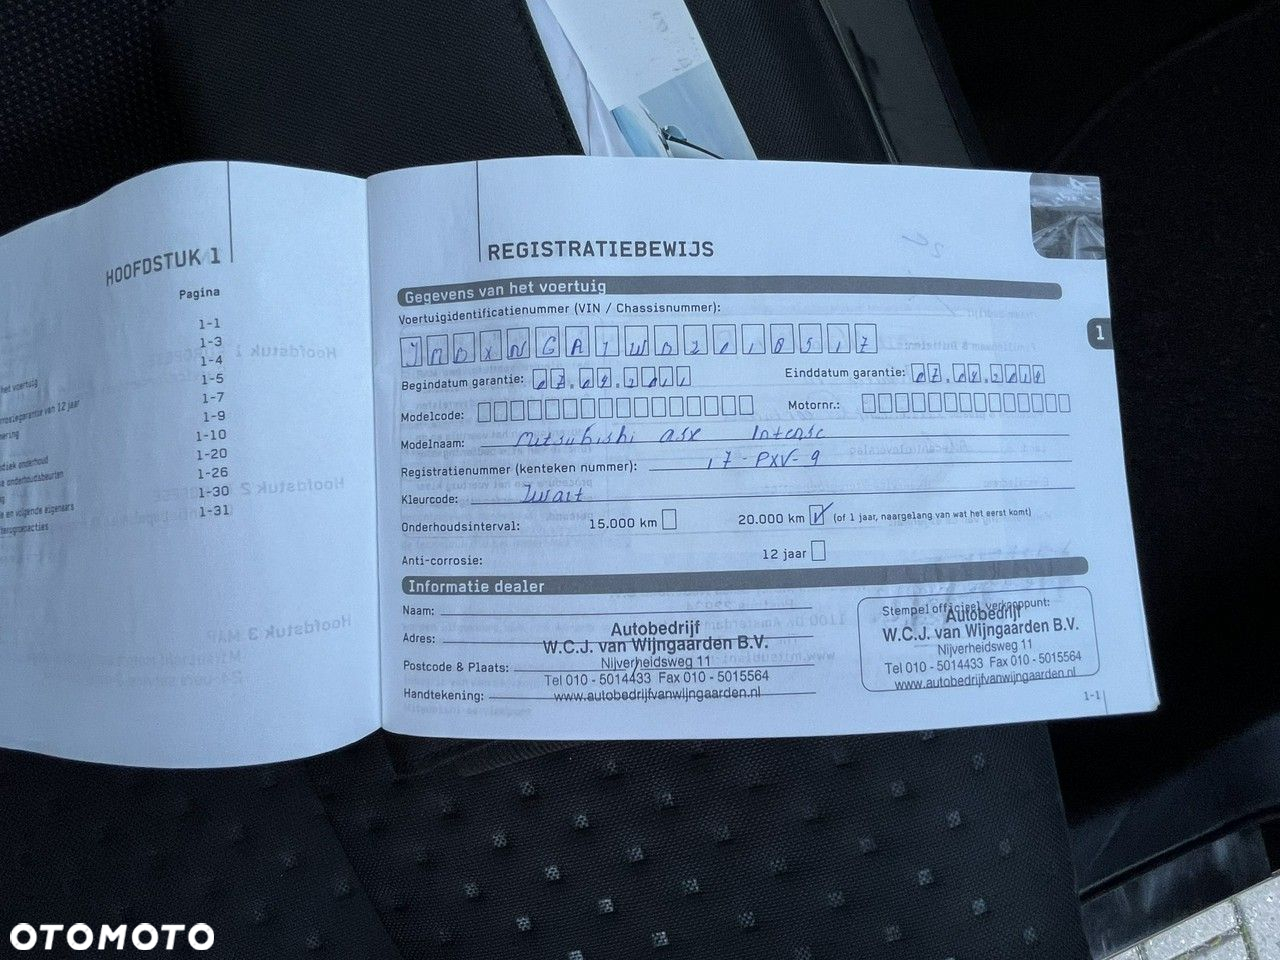 HOOFDSTUK 1
Pagina
1-1
1-3
1-4
1-5
1-7
1-9
1-10
1-20
1-26
1-30
1-31
het voertuig
van 12 jaar
onderhoud
onderhoudsbeurten
en volgende eigenaars
REGISTRATIEBEWIJS
Gegevens van het voertuig
Voertuigidentificatienummer (VIN / Chassisnummer):
1
Begindatum garantie: 07.04.2011 Einddatum garantie: 07.04.2014
Modelcode: Motornr.:
Modelnaam: Mitsubishi asx Intense
Registratienummer (kenteken nummer): 17-PXV-9
Kleurcode: Zwart
Onderhoudsinterval: 15.000 km 20.000 km (of 1 jaar, naargelang van wat het eerst komt)
Anti-corrosie: 12 jaar
Informatie dealer
Naam:
Adres:
Postcode & Plaats:
Handtekening:
Autobedrijf
W.C.J. van Wijngaarden B.V.
Nijverheidsweg 11
Tel 010 - 5014433 Fax 010 - 5015564
www.autobedrijfvanwijngaarden.nl
Stempel officieel verkooppunt:
Autobedrijf
W.C.J. van Wijngaarden B.V.
Nijverheidsweg 11
Tel 010 - 5014433 Fax 010 - 5015564
www.autobedrijfvanwijngaarden.nl
1-1
OTOMOTO